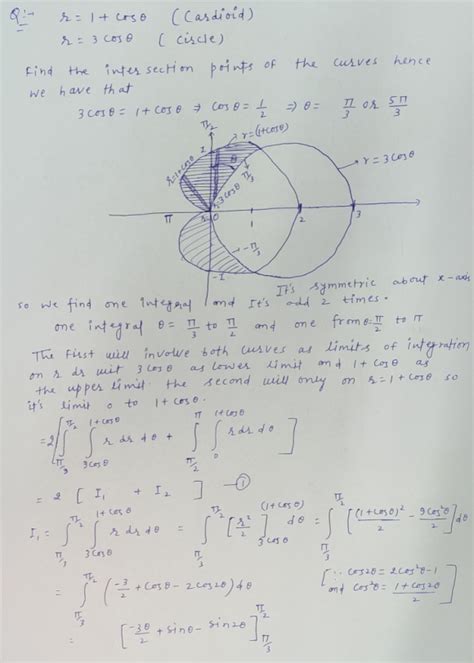 Q:- r = 1 + cosθ (Cardioid)
r = 3 cosθ (circle)
Find the intersection points of the curves hence
we have that
3cosθ = 1 + cosθ ⇒ cosθ = 1/2 ⇒ θ = π/3 or 5π/3
π/2
1
r=(1+cosθ)
r=1+cosθ
θ
π/3
r=3cosθ
r=3cosθ
π
r=0
1
2
3
-π/3
-1
It's symmetric about x-axis
so we find one integral and It's add 2 times.
one integral θ = π/3 to π/2 and one from θ=π/2 to π
The first will involve both curves as limits of integration
on r dr wit 3cosθ as lower limit and 1 + cosθ as
the upper limit. the second will only on r=1+cosθ so
it's limit 0 to 1+cosθ.
=2[∫_{π/3}^{π/2} ∫_{3cosθ}^{1+cosθ} r dr dθ + ∫_{π/2}^{π} ∫_{0}^{1+cosθ} r dr dθ]
= 2 [ I₁ + I₂ ] —①
I₁ = ∫_{π/3}^{π/2} ∫_{3cosθ}^{1+cosθ} r dr dθ = ∫_{π/3}^{π/2} [r²/2]_{3cosθ}^{(1+cosθ)} dθ = ∫_{π/3}^{π/2} [(1+cosθ)²/2 - 9cos²θ/2] dθ
= ∫_{π/3}^{π/2} (-3/2 + cosθ - 2cos2θ) dθ
[∵ cos2θ = 2cos²θ-1
and cos²θ = (1+cos2θ)/2]
= [-3θ/2 + sinθ - sin2θ]_{π/3}^{π/2}